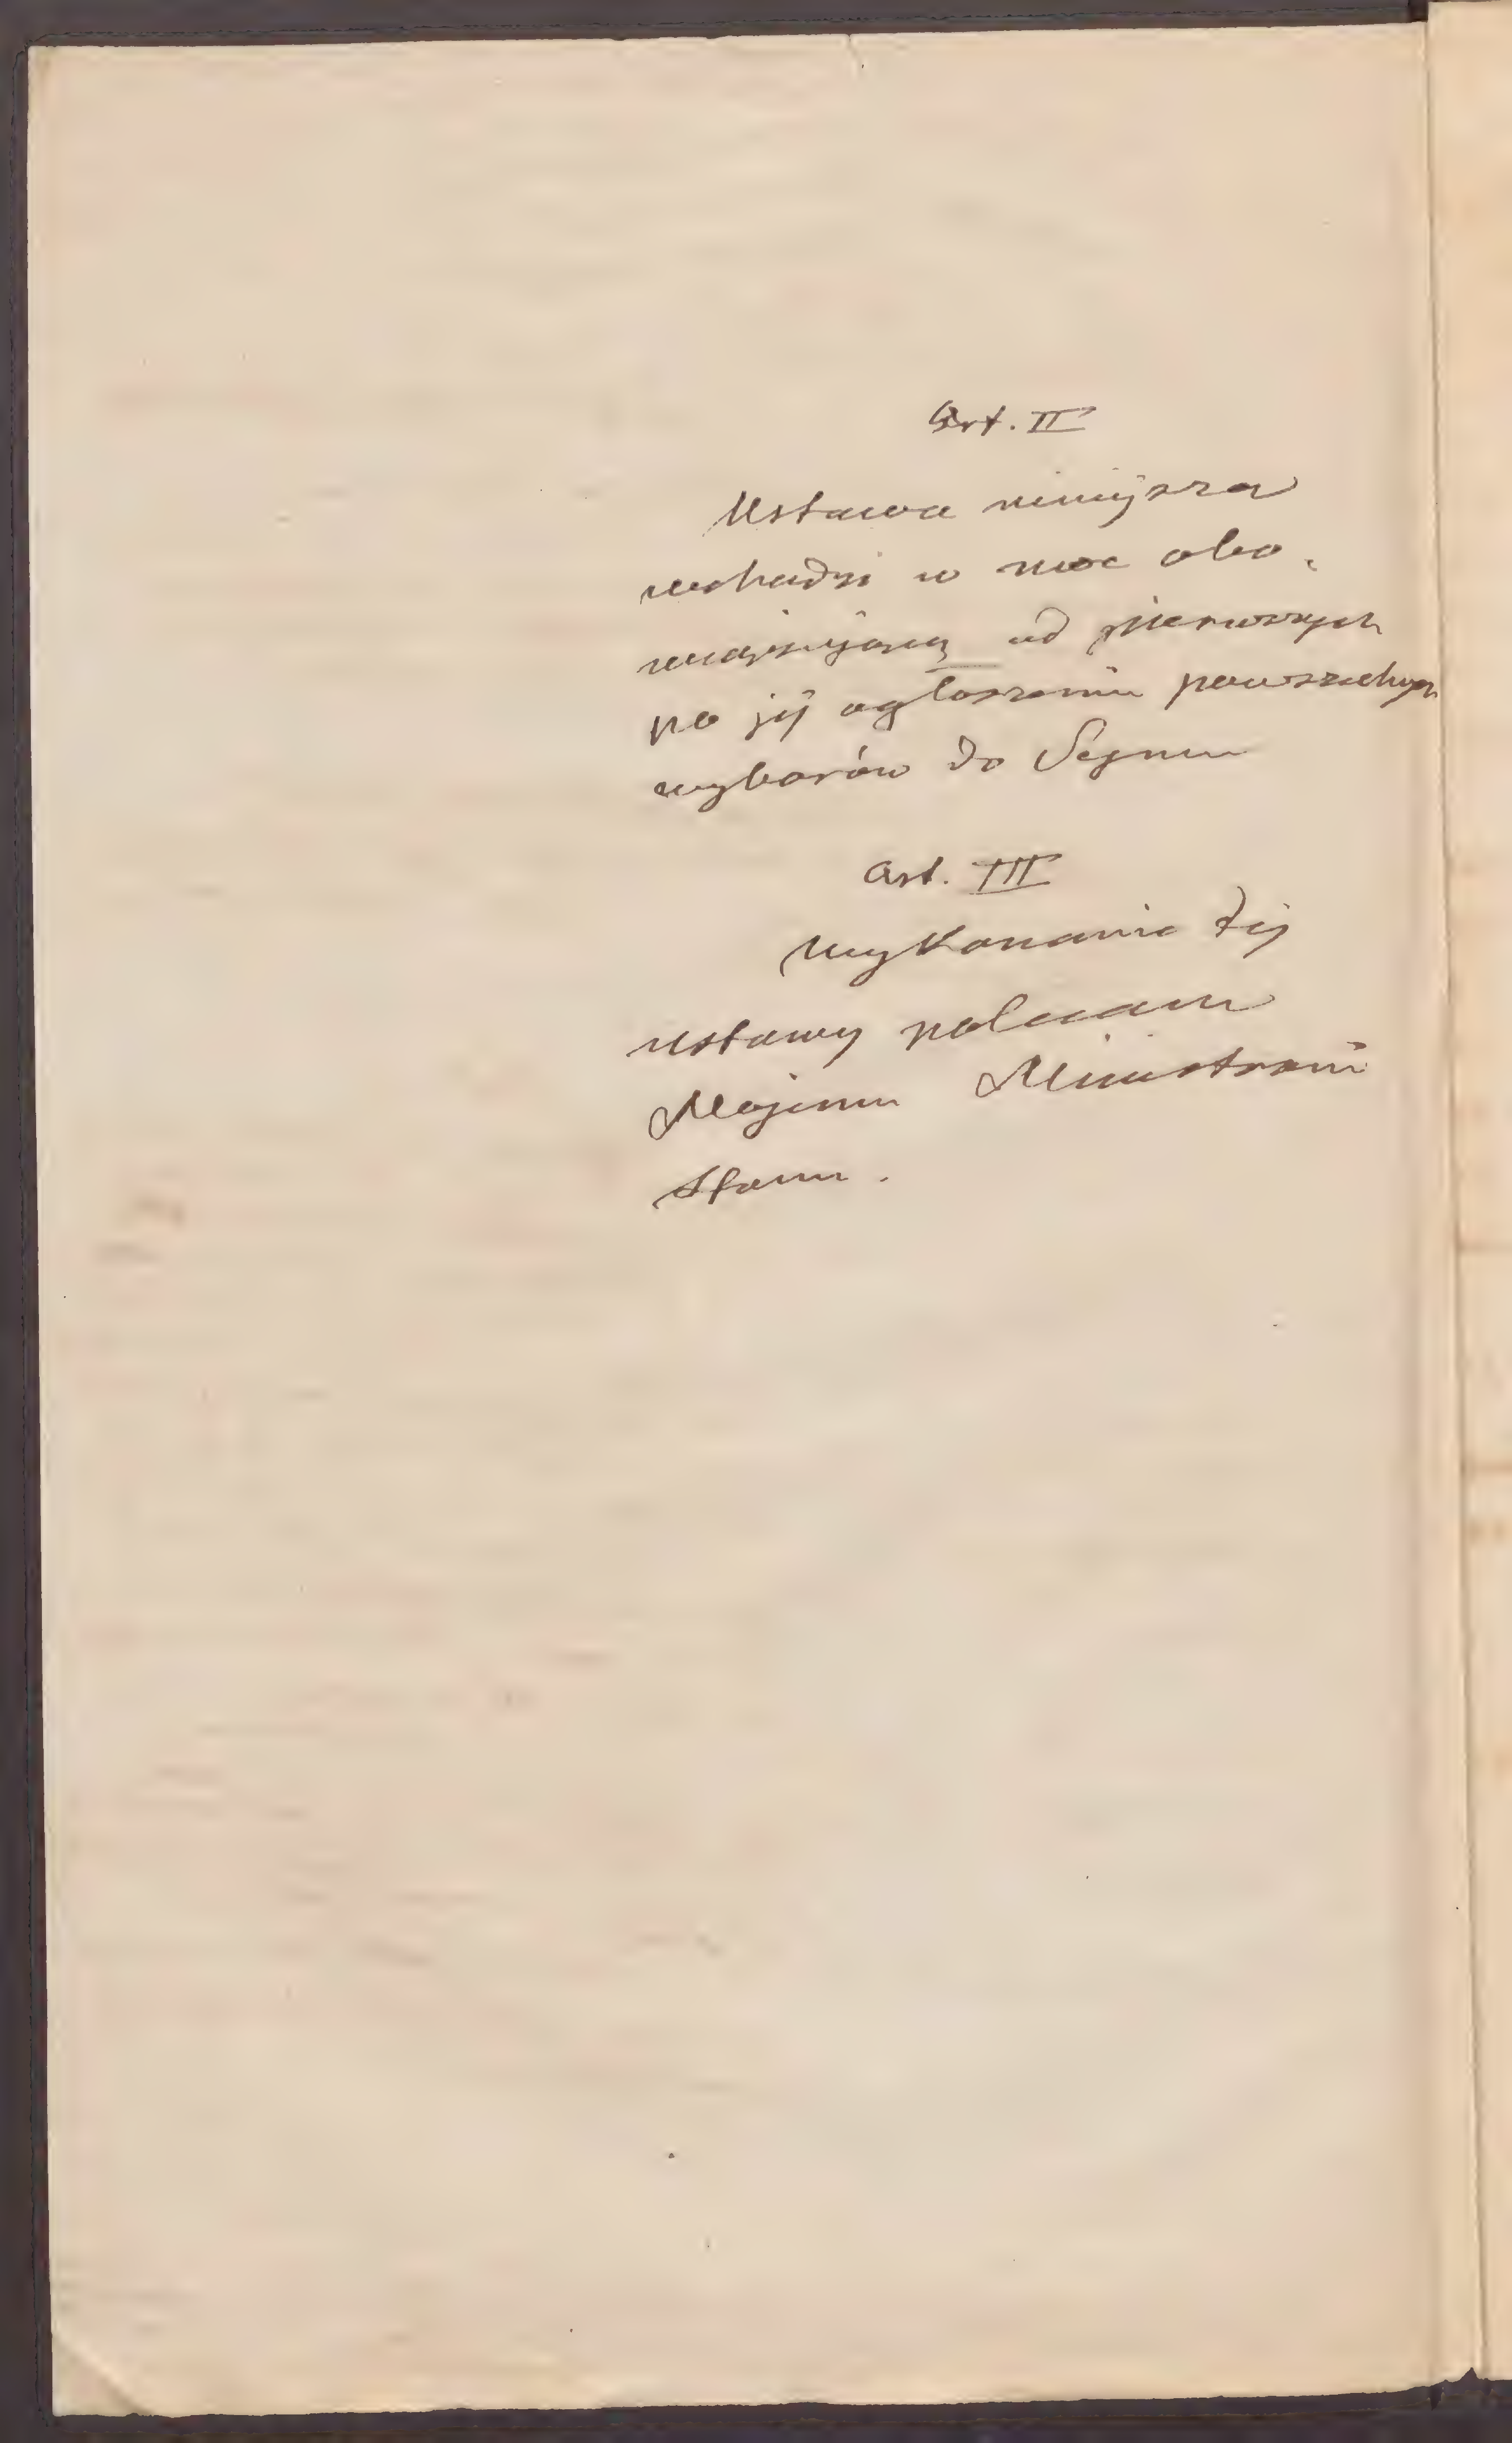 Art. II
Ustawa niniejsza
wchodzi w moc obo-
wiązującą od pierwszych
po jej ogłoszeniu powszechnych
wyborów do Sejmu
Art. III
Wykonanie tej
ustawy polecam
Mojemu Ministrowi
Stanu.